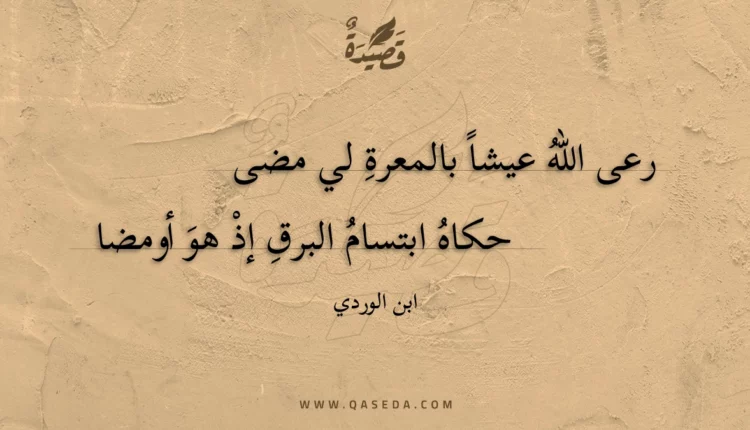 قَصِيْدَةٌ
رعى اللهُ عيشاً بالمعرةِ لي مضى
حكاهُ ابتسامُ البرقِ إذْ هوَ أومضا
ابن الوردي
WWW.QASEDA.COM